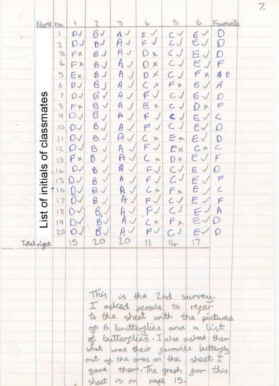 7.
Name no. 1 2 3 4 5 6 Favourite
List of initials of classmates
1 D✓ B✓ A✓ F✓ C✓ E✓ D
2 D✓ B✓ A✓ F✓ C✓ E✓ D
3 F× B✓ A✓ D× C✓ E✓ D
4 F× B✓ A✓ D× C✓ E✓ F
5 E× B✓ A✓ D× C✓ F×
6 D✓ B✓ A✓ C× F× E✓ A
7 D✓ B✓ A✓ F✓ C✓ E✓ D
8 F× B✓ A✓ E× C✓ D× F
9 D✓ B✓ A✓ F✓ C✓ E✓ C
10 D✓ B✓ A✓ F✓ C✓ E✓ D
11 D✓ B✓ A✓ C× E× E✓ D
12 D✓ B✓ A✓ F✓ E× C× C
13 F× B✓ A✓ C× D× E✓ F
14 D✓ B✓ A✓ F✓ C✓ E✓ D
15 D✓ B✓ A✓ F✓ C✓ E✓ F
16 D✓ B✓ A✓ C× F× E✓ F
17 D✓ B✓ A✓ F✓ C✓ E✓ F
18 D✓ B✓ A✓ F✓ C✓ E✓ A
19 D✓ B✓ A✓ C× F× E✓ D
20 D✓ B✓ A✓ F✓ C✓ E✓ D
Total right 15 20 20 11 14 17
This is the 2nd survey.
I asked people to refer
to the sheet with the pictures
of 6 butterflies and a list
of butterflies. I also asked them
what was their favourite butterfly
out of the ones on the sheet I
gave them. The graph for this
sheet is on page 15.